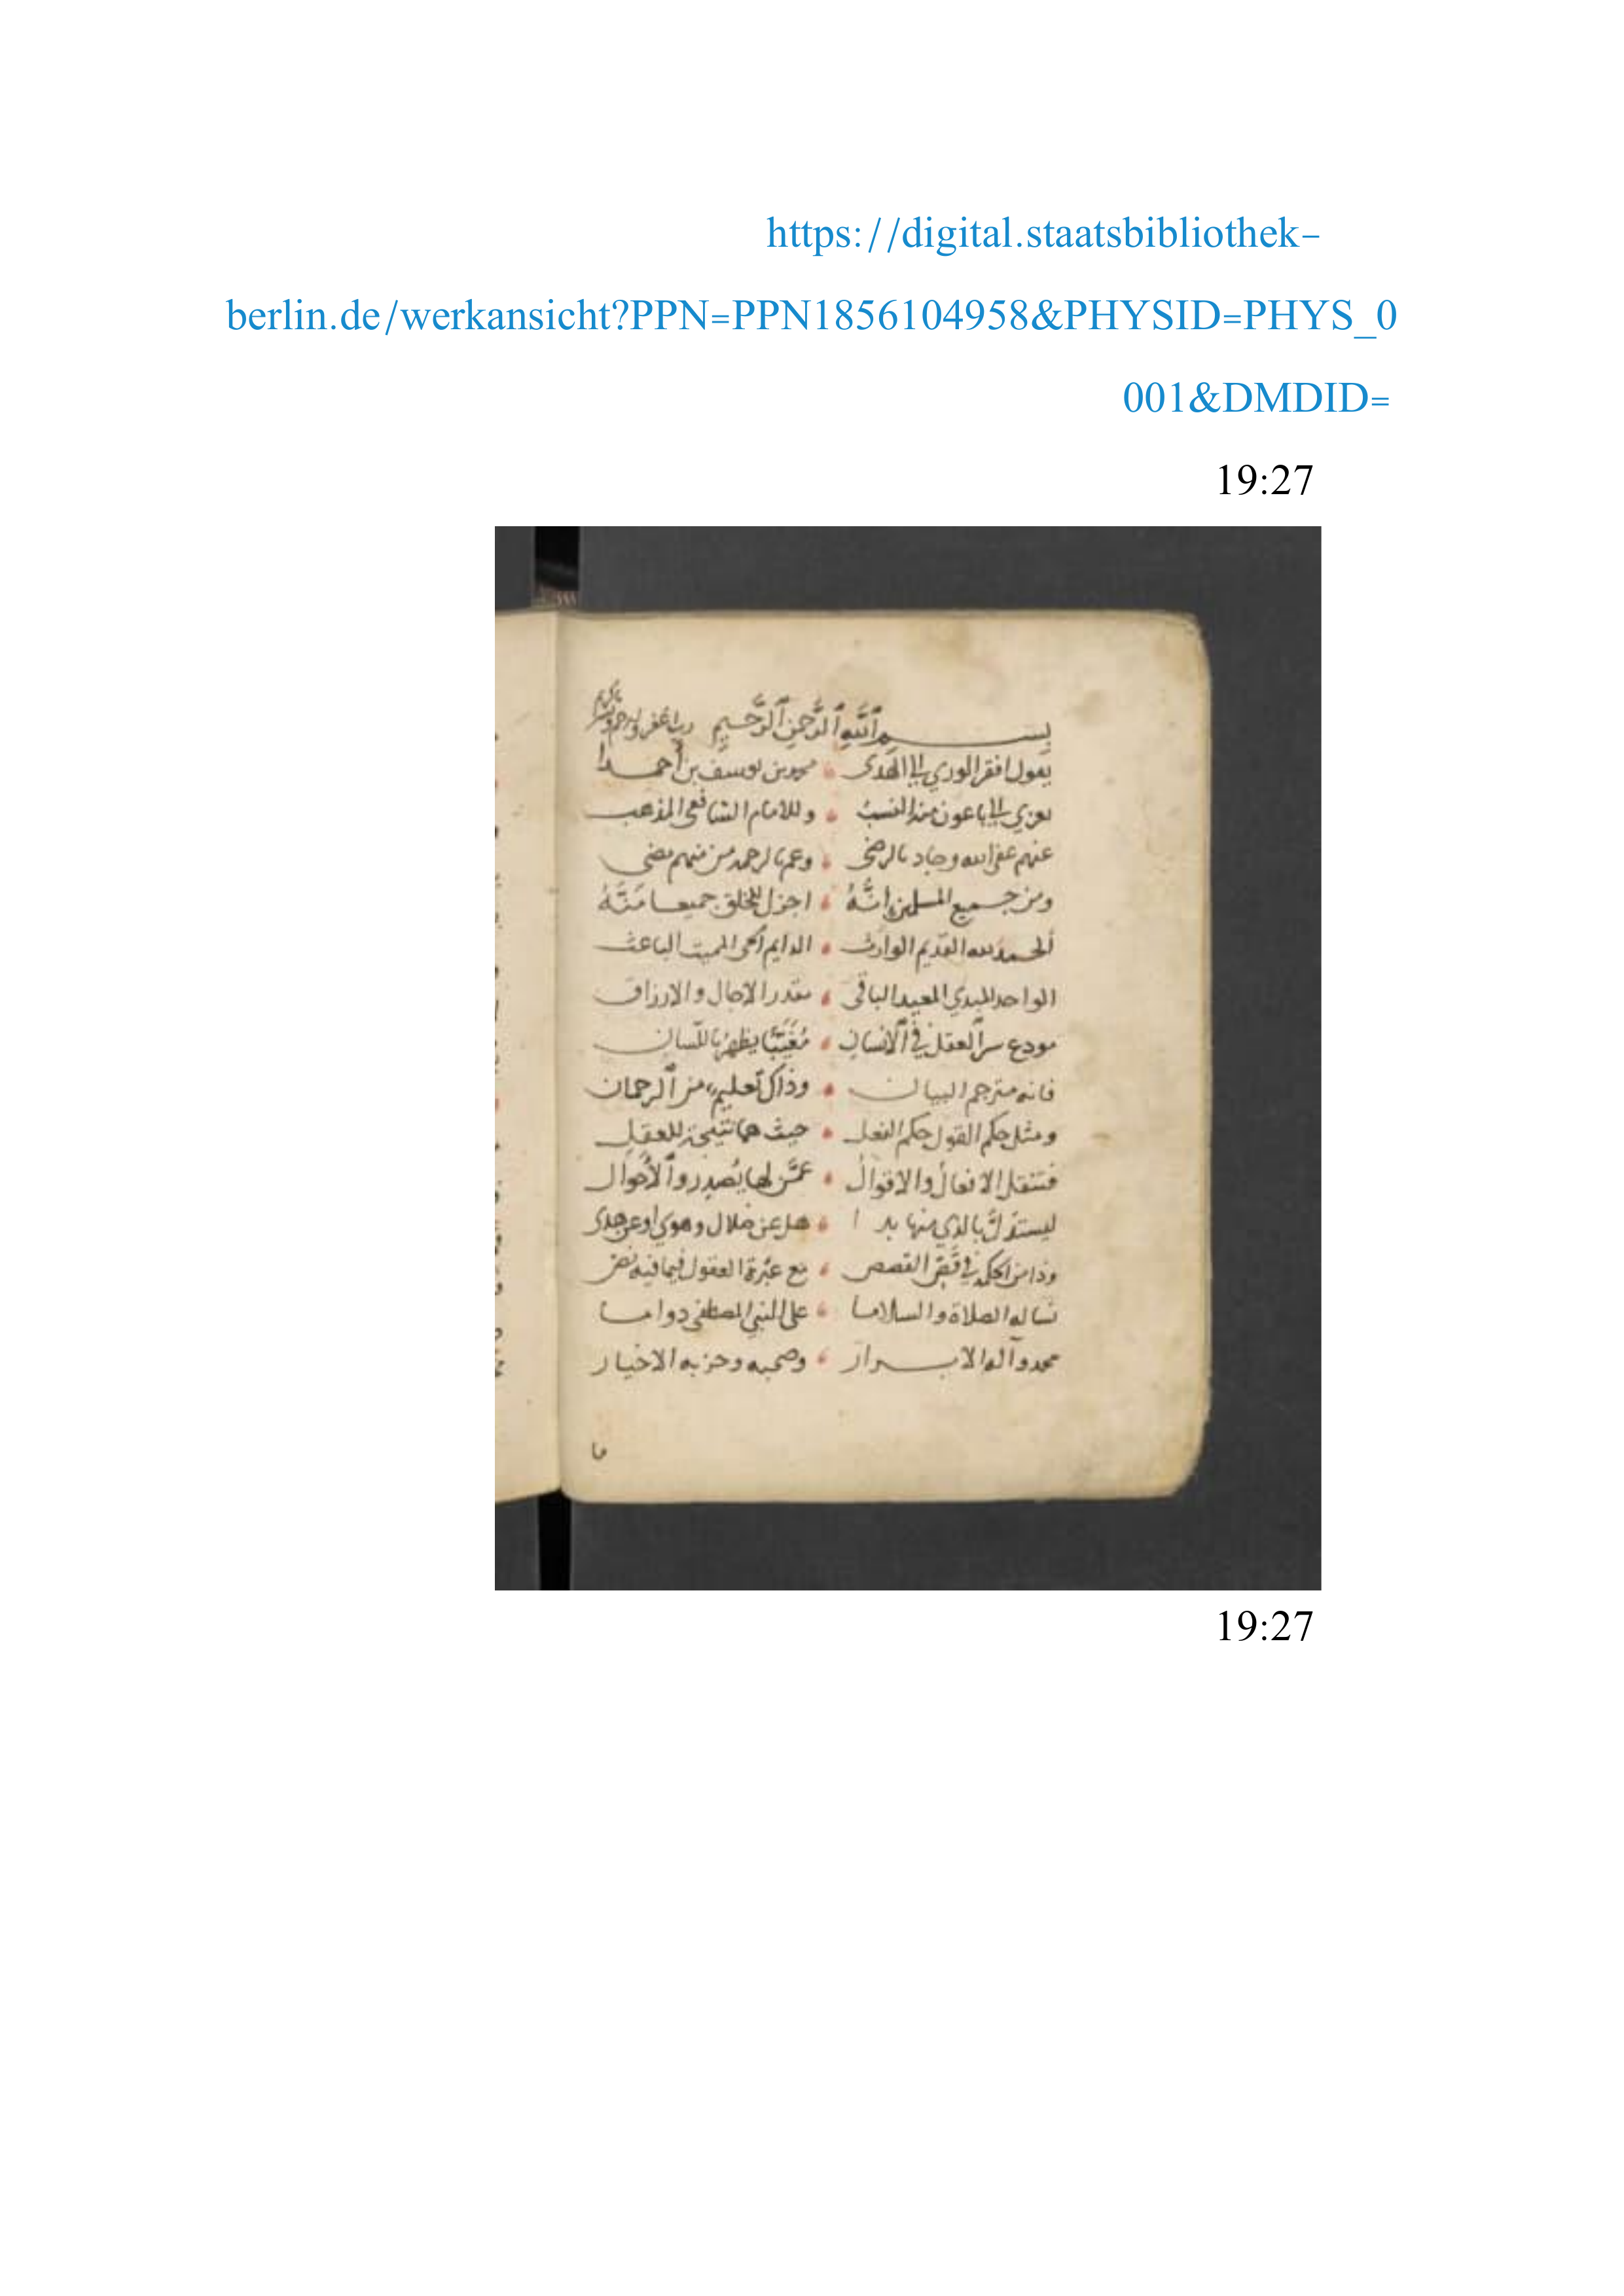 https://digital.staatsbibliothek-
berlin.de/werkansicht?PPN=PPN1856104958&PHYSID=PHYS_0
001&DMDID=
19:27
بسم ٱللَّهِ ٱلرَّحمن ٱلرَّحيم رب اغفر وارحم
يقول افقر الوري الي الهدى محمد بن يوسف بن أحمدا
يعزي الي باعون منه النسب وللامام الشافعي المذهب
عنهم عفى الله وجاد بالرضى وعم بالرحمة من منهم مضى
ومن جميع المسلمين انَّهُ اجزل للخلق جميعا مَنَّهُ
ألحمد لله القديم الوارث الدايم الحي المميت الباعث
الواحد المبدي المعيد الباقي مقدر الاجال والارزاق
مودع سر ٱلعقل في ٱلانسان مُغَيَّبًا يظهر باللّسان
فانه مترجم البيان وذاك تعليم من ٱلرحمان
ومثل حكم القول حكم الفعل حيث هما نتيجة للعقل
فتنقل الافعالُ والاقوالُ عمَّن لها يُصدِر وٱلأحوال
ليستدلَّ بالذي منها بدا هل عن ضلال وهوي اوعن هدى
وذا من الحكمة في قَصِّ القصص مع عبْرة العقول فيما فيه نص
نساله الصلاة والسلاما على النبي المصطفى دواما
محمد وآله الابرار وصحبه وحزبه الاخيار
ما
19:27